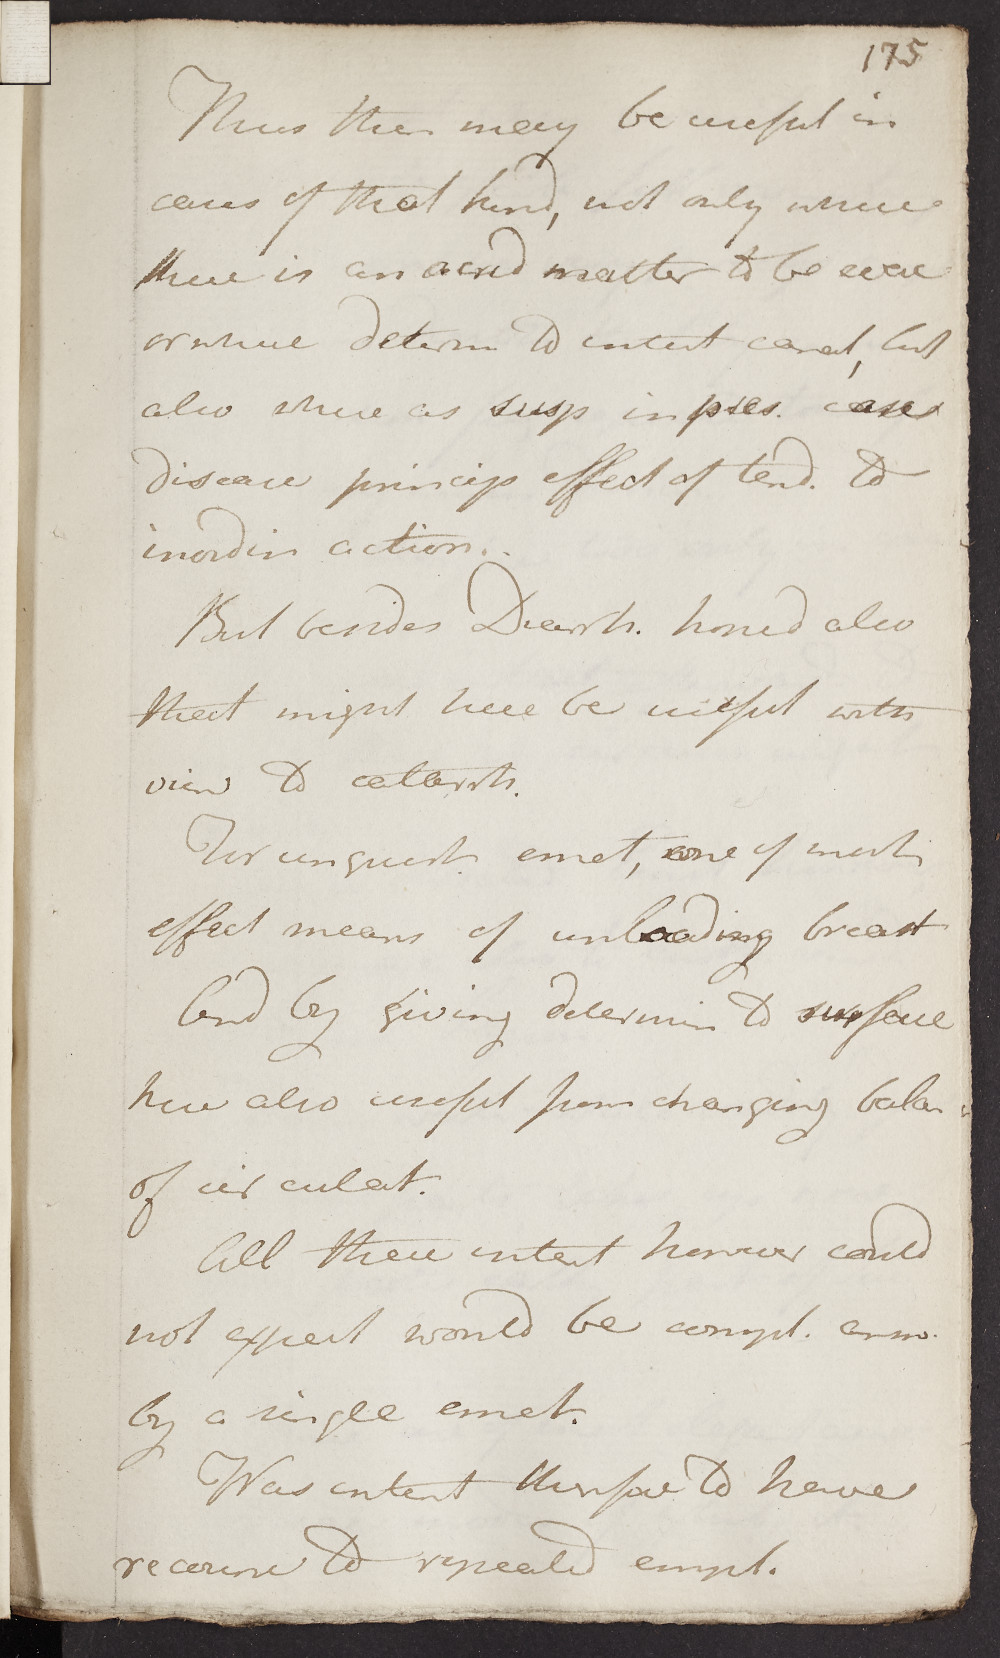 175
Thus then may be useful in
cases of that kind, not only where
there is an acrid matter to be evac
or where determ to intest canal, but
also where as susp in pres. case
disease princip effect of tend. to
inordin action.
But besides Diarrh. hoped also
that might here be useful with
view to catarrh.
For unquest. emet, one of most
effect means of unloading breast
And by giving determin to surface
here also useful from changing balan
of circulat.
All these intent however could
not expect would be compl. answ.
by a single emet.
Was intent therefore to have
recourse to repeated empl.